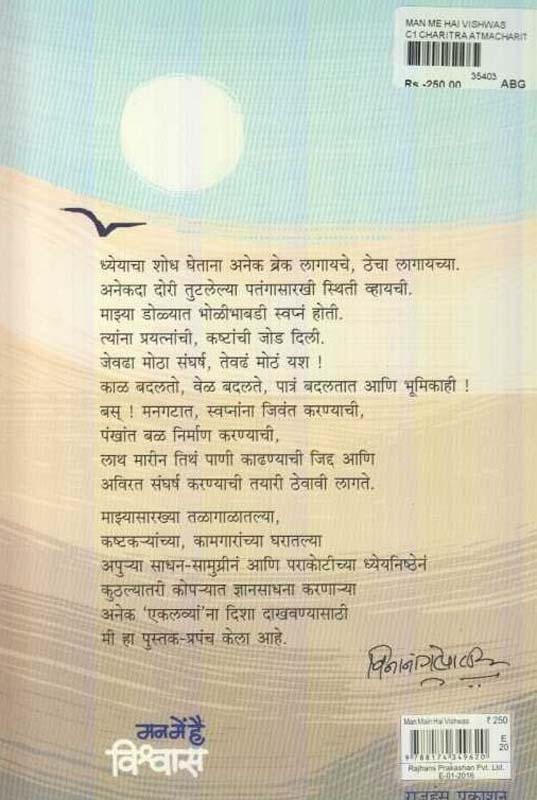 MAN ME HAI VISHWAS
C1 CHARITRA ATMACHARIT
35403
Rs.-250.00 ABG
ध्येयाचा शोध घेताना अनेक ब्रेक लागायचे, ठेचा लागायच्या.
अनेकदा दोरी तुटलेल्या पतंगासारखी स्थिती व्हायची.
माझ्या डोळ्यात भोळीभाबडी स्वप्नं होती.
त्यांना प्रयत्नांची, कष्टांची जोड दिली.
जेवढा मोठा संघर्ष, तेवढं मोठं यश !
काळ बदलतो, वेळ बदलते, पात्रं बदलतात आणि भूमिकाही !
बस् ! मनगटात, स्वप्नांना जिवंत करण्याची,
पंखांत बळ निर्माण करण्याची,
लाथ मारीन तिथं पाणी काढण्याची जिद्द आणि
अविरत संघर्ष करण्याची तयारी ठेवावी लागते.
माझ्यासारख्या तळागाळातल्या,
कष्टकऱ्यांच्या, कामगारांच्या घरातल्या
अपुऱ्या साधन-सामुग्रीनं आणि पराकोटीच्या ध्येयनिष्ठेनं
कुठल्यातरी कोपऱ्यात ज्ञानसाधना करणाऱ्या
अनेक ‘एकलव्यां’ना दिशा दाखवण्यासाठी
मी हा पुस्तक-प्रपंच केला आहे.
मन में है
विश्वास
Man Main Hai Vishwas ₹ 250
E
20
9788174349620
Rajhans Prakashan Pvt. Ltd.
E-01-2016
राजहंस प्रकाशन